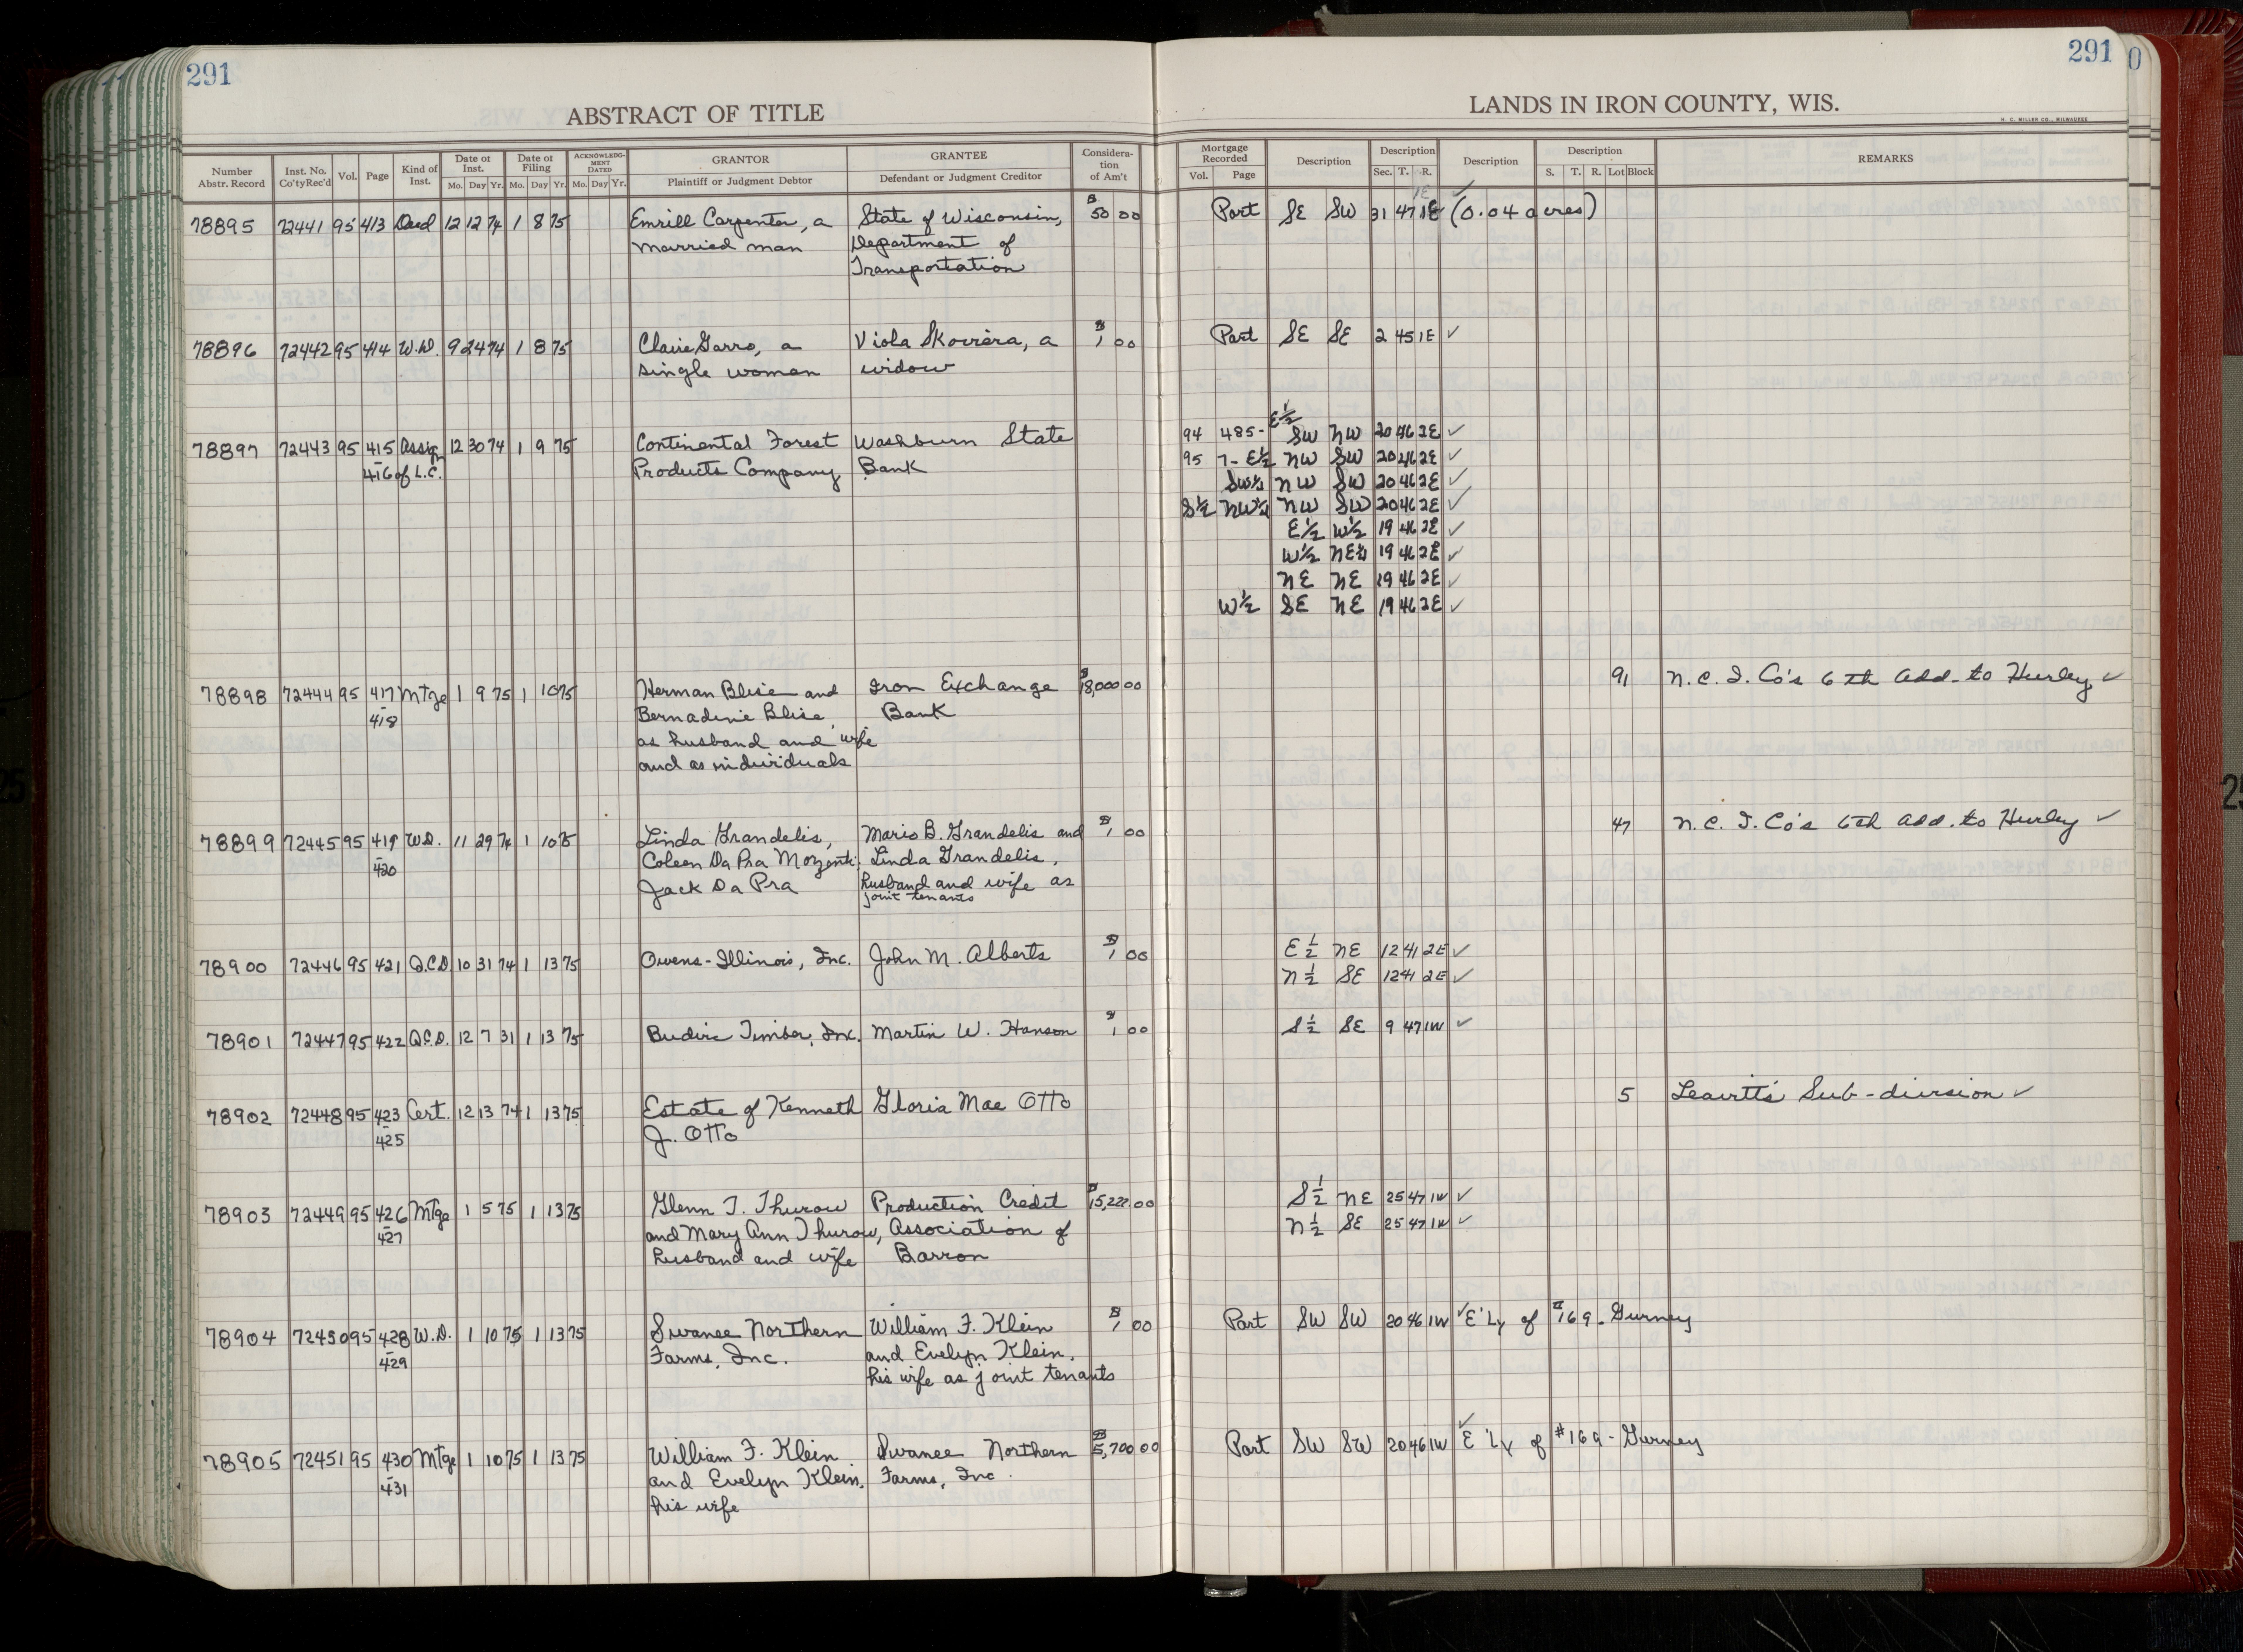 291
291
ABSTRACT OF TITLE
LANDS IN IRON COUNTY, WIS.
H. C. MILLER CO., MILWAUKEE
Number Abstr. Record | Inst. No. Co'ty Rec'd | Vol. | Page | Kind of Inst. | Date of Inst. Mo. Day Yr. | Date of Filing Mo. Day Yr. | ACKNOWLEDGMENT DATED Mo. Day Yr. | GRANTOR Plaintiff or Judgment Debtor | GRANTEE Defendant or Judgment Creditor | Consideration of Am't | Mortgage Recorded Vol. Page | Description | Description Sec. T. R. | Description | Description S. T. R. Lot Block | REMARKS
78895 72441 95 413 Deed 12 12 74 1 8 75 Emrill Carpenter, a State of Wisconsin, $50 00 Part SE SW 31 47 1E (0.04 acres)
married man Department of
Transportation
78896 72442 95 414 W.D. 9 24 74 1 8 75 Claire Garro, a Viola Skoviera, a $1 00 Part SE SE 2 45 1E ✓
single woman widow
78897 72443 95 415 Assign 12 30 74 1 9 75 Continental Forest Washburn State 94 485- E½ SW NW 20 46 2E ✓
416 of L.C. Products Company Bank 95 7- E½ NW SW 20 46 2E ✓
SW¼ NW SW 20 46 2E ✓
S½ NW¼ NW SW 20 46 2E ✓
E½ W½ 19 46 2E ✓
W½ NE¼ 19 46 2E ✓
NE NE 19 46 2E ✓
W½ SE NE 19 46 2E ✓
78898 72444 95 417 Mtge 1 9 75 1 10 75 Herman Blise and Iron Exchange $18,000 00 91 N.C.I. Co's 6th Add. to Hurley ✓
418 Bernadine Blise, Bank
as husband and wife
and as individuals
78899 72445 95 419 W.D. 11 29 74 1 10 75 Linda Grandelis, Mario B. Grandelis and $1 00 47 N.C. I. Co's 6th Add. to Hurley ✓
420 Coleen Da Pra Linda Grandelis,
Jack Da Pra husband and wife as
joint tenants
78900 72446 95 421 Q.C.D. 10 31 74 1 13 75 Owens-Illinois, Inc. John M. Alberts $1 00 E½ NE 12 41 2E ✓
N½ SE 12 41 2E ✓
78901 72447 95 422 Q.C.D. 12 7 31 1 13 75 Timber, Inc. Martin W. Hanson $1 00 S½ SE 9 47 1W ✓
78902 72448 95 423 Cert. 12 13 74 1 13 75 Estate of Kenneth Gloria Mae Otto 5 Leavitt's Sub-division ✓
425 J. Otto
78903 72449 95 426 Mtge 1 5 75 1 13 75 Glenn T. Thurow Production Credit $15,222.00 S½ NE 25 47 1W ✓
427 and Mary Ann Thurow, Association of N½ SE 25 47 1W ✓
husband and wife Barron
78904 72450 95 428 W.D. 1 10 75 1 13 75 Swanee Northern William F. Klein $1 00 Part SW SW 20 46 1W ✓ E'Ly of #169 - Gurney
429 Farms, Inc. and Evelyn Klein,
his wife as joint tenants
78905 72451 95 430 Mtge 1 10 75 1 13 75 William F. Klein Swanee Northern $5,700 00 Part SW SW 20 46 1W ✓ E'Ly of #169 - Gurney
431 and Evelyn Klein, Farms, Inc.
his wife